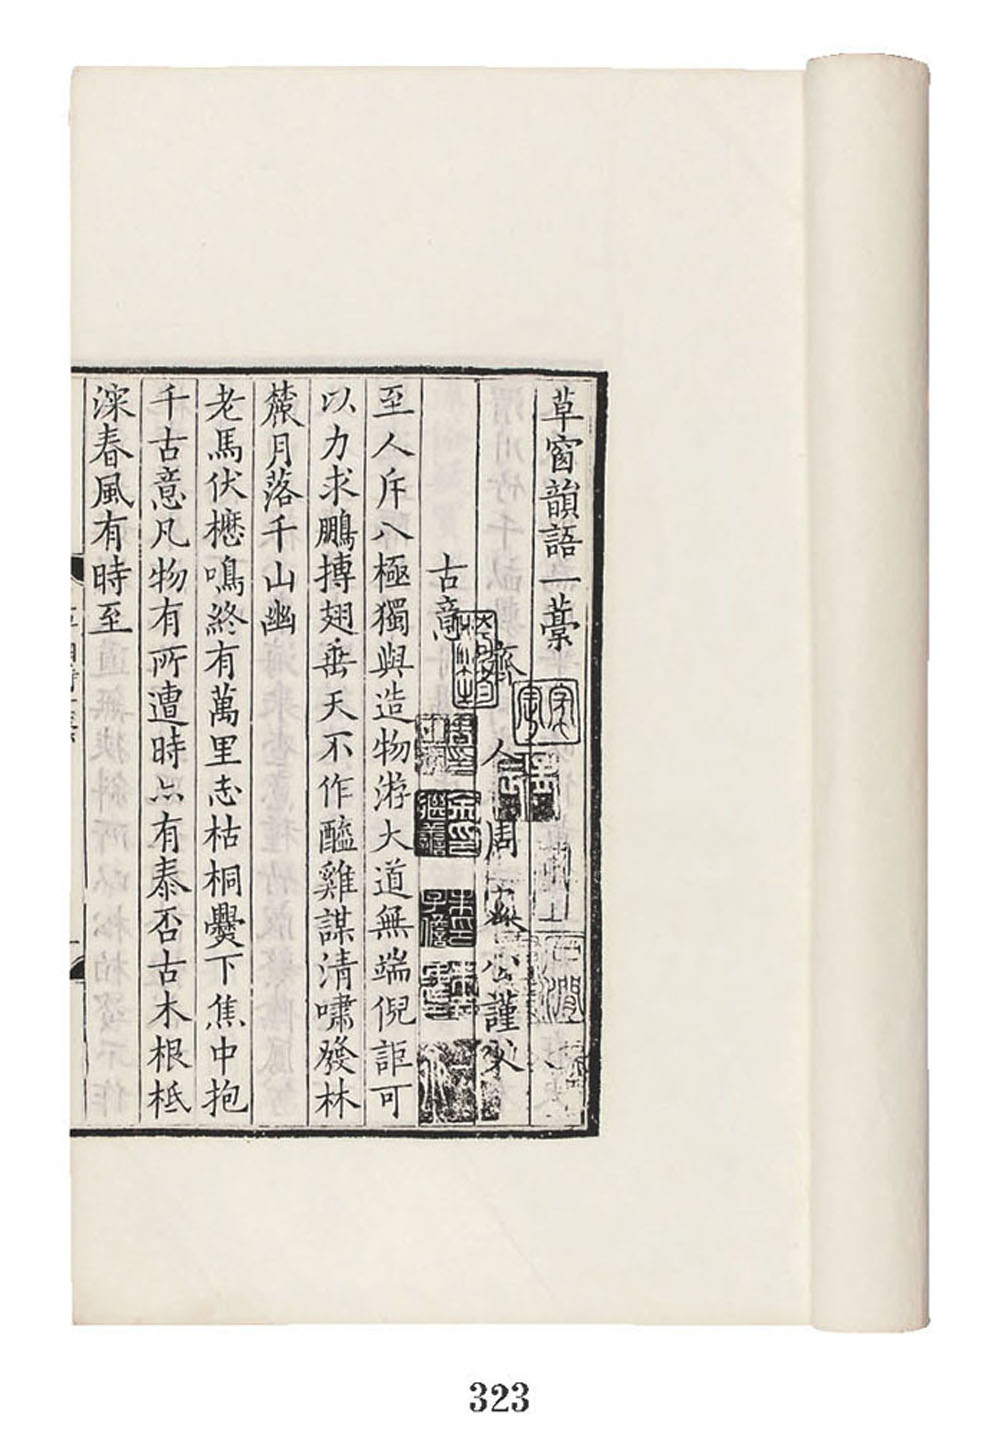 草窗韻語一藁
齊人周密公謹父
古意
至人斥八極獨與造物游大道無端倪詎可
以力求鵬摶翅垂天不作醯雞謀清嘯發林
麓月落千山幽
老馬伏櫪鳴終有萬里志枯桐爨下焦中抱
千古意凡物有所遭時亦有泰否古木根柢
深春風有時至
323